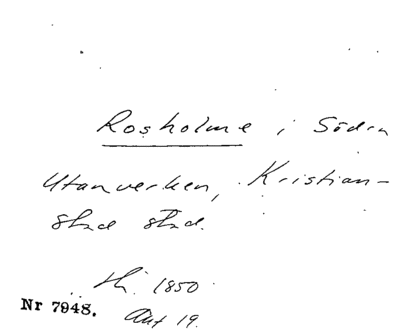 Rosholme i Södra
Utanverken, Kristian-
stad stad.
Hi. 1850
Nr 7948. Akt 19.